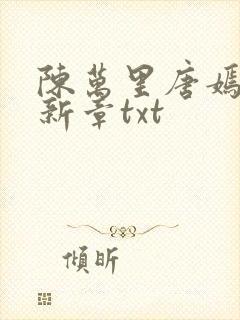 陳萬里唐嫣
新章txt
傾昕